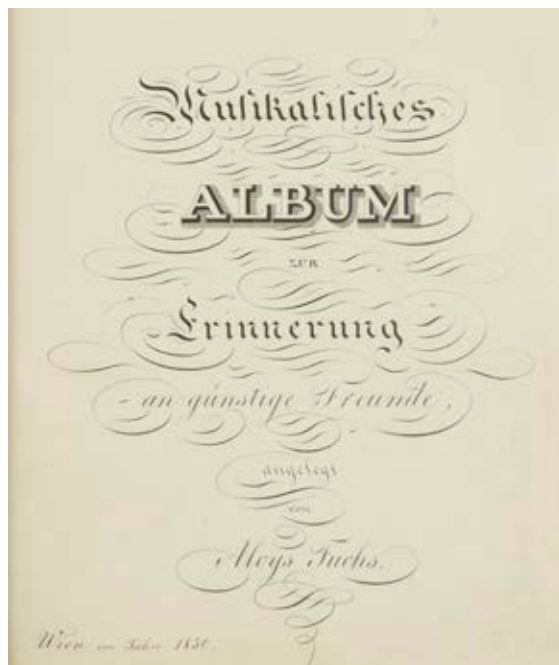 Musikalisches
ALBUM
ZUR
Erinnerung
an günstige Freunde,
angelegt
von
Aloys Fuchs.
Wien im Jahre 1830.